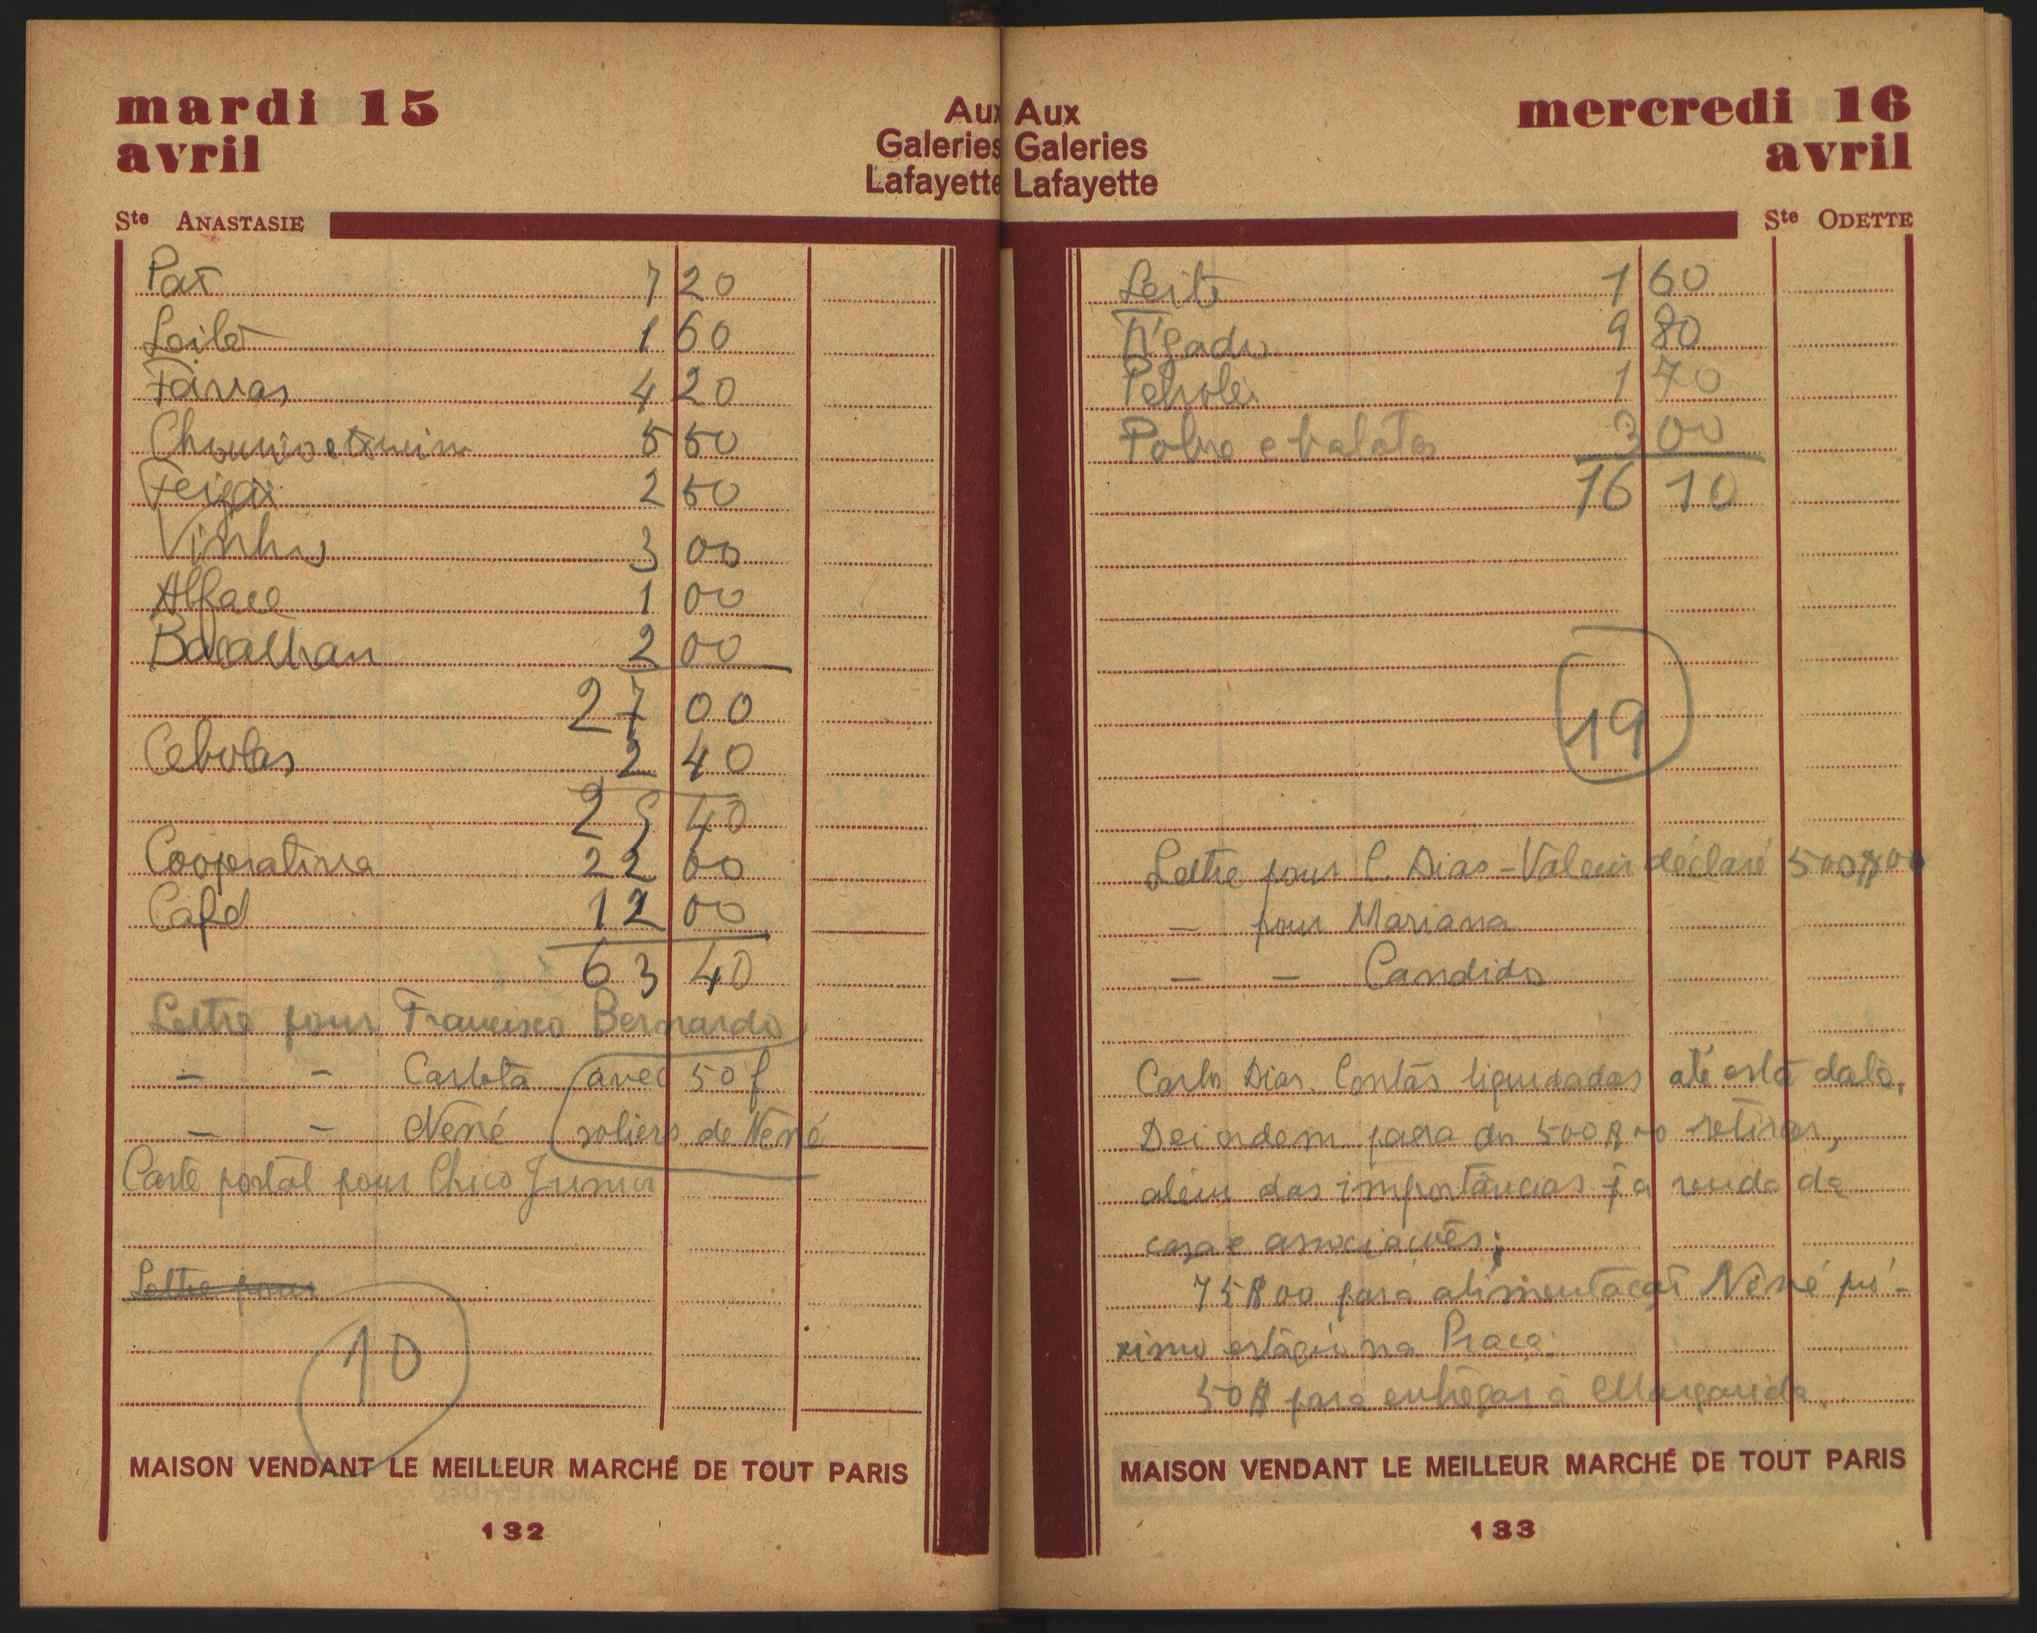 mardi 15
avril
Aux
Galeries
Lafayette
Ste ANASTASIE
Pão 7 20
Leite 1 60
Favas 4 20
Chouriço e 5 50
Feijão 2 50
Vinho 3 00
Alface 1 00
Bacalhau 2 00
27 00
Cebolas 2 40
29 40
Cooperativa 22 00
Café 12 00
63 40
Lettre pour Francisco Bernardo
— — Carlota (avec 50 f
— — Nené (soliers de Nené
Carte postal pour Chico Junior
Lettre pour
10
MAISON VENDANT LE MEILLEUR MARCHÉ DE TOUT PARIS
132
Aux
Galeries
Lafayette
mercredi 16
avril
Ste ODETTE
Leite 1 60
9 80
1 70
e batatas 3 00
16 10
19
Lettre pour C. Dias - Valeur déclaré 500$00
— pour Mariana
— — Candido
Carlos Dias. Contas liquidadas até esta data.
Dei ordem para os 500$00 retirar,
além das importâncias p a renda da
casa e associações;
75$00 para alimentação Nené pró-
ximo estágio na Praça.
50$ para entregar à Margarida.
MAISON VENDANT LE MEILLEUR MARCHÉ DE TOUT PARIS
133